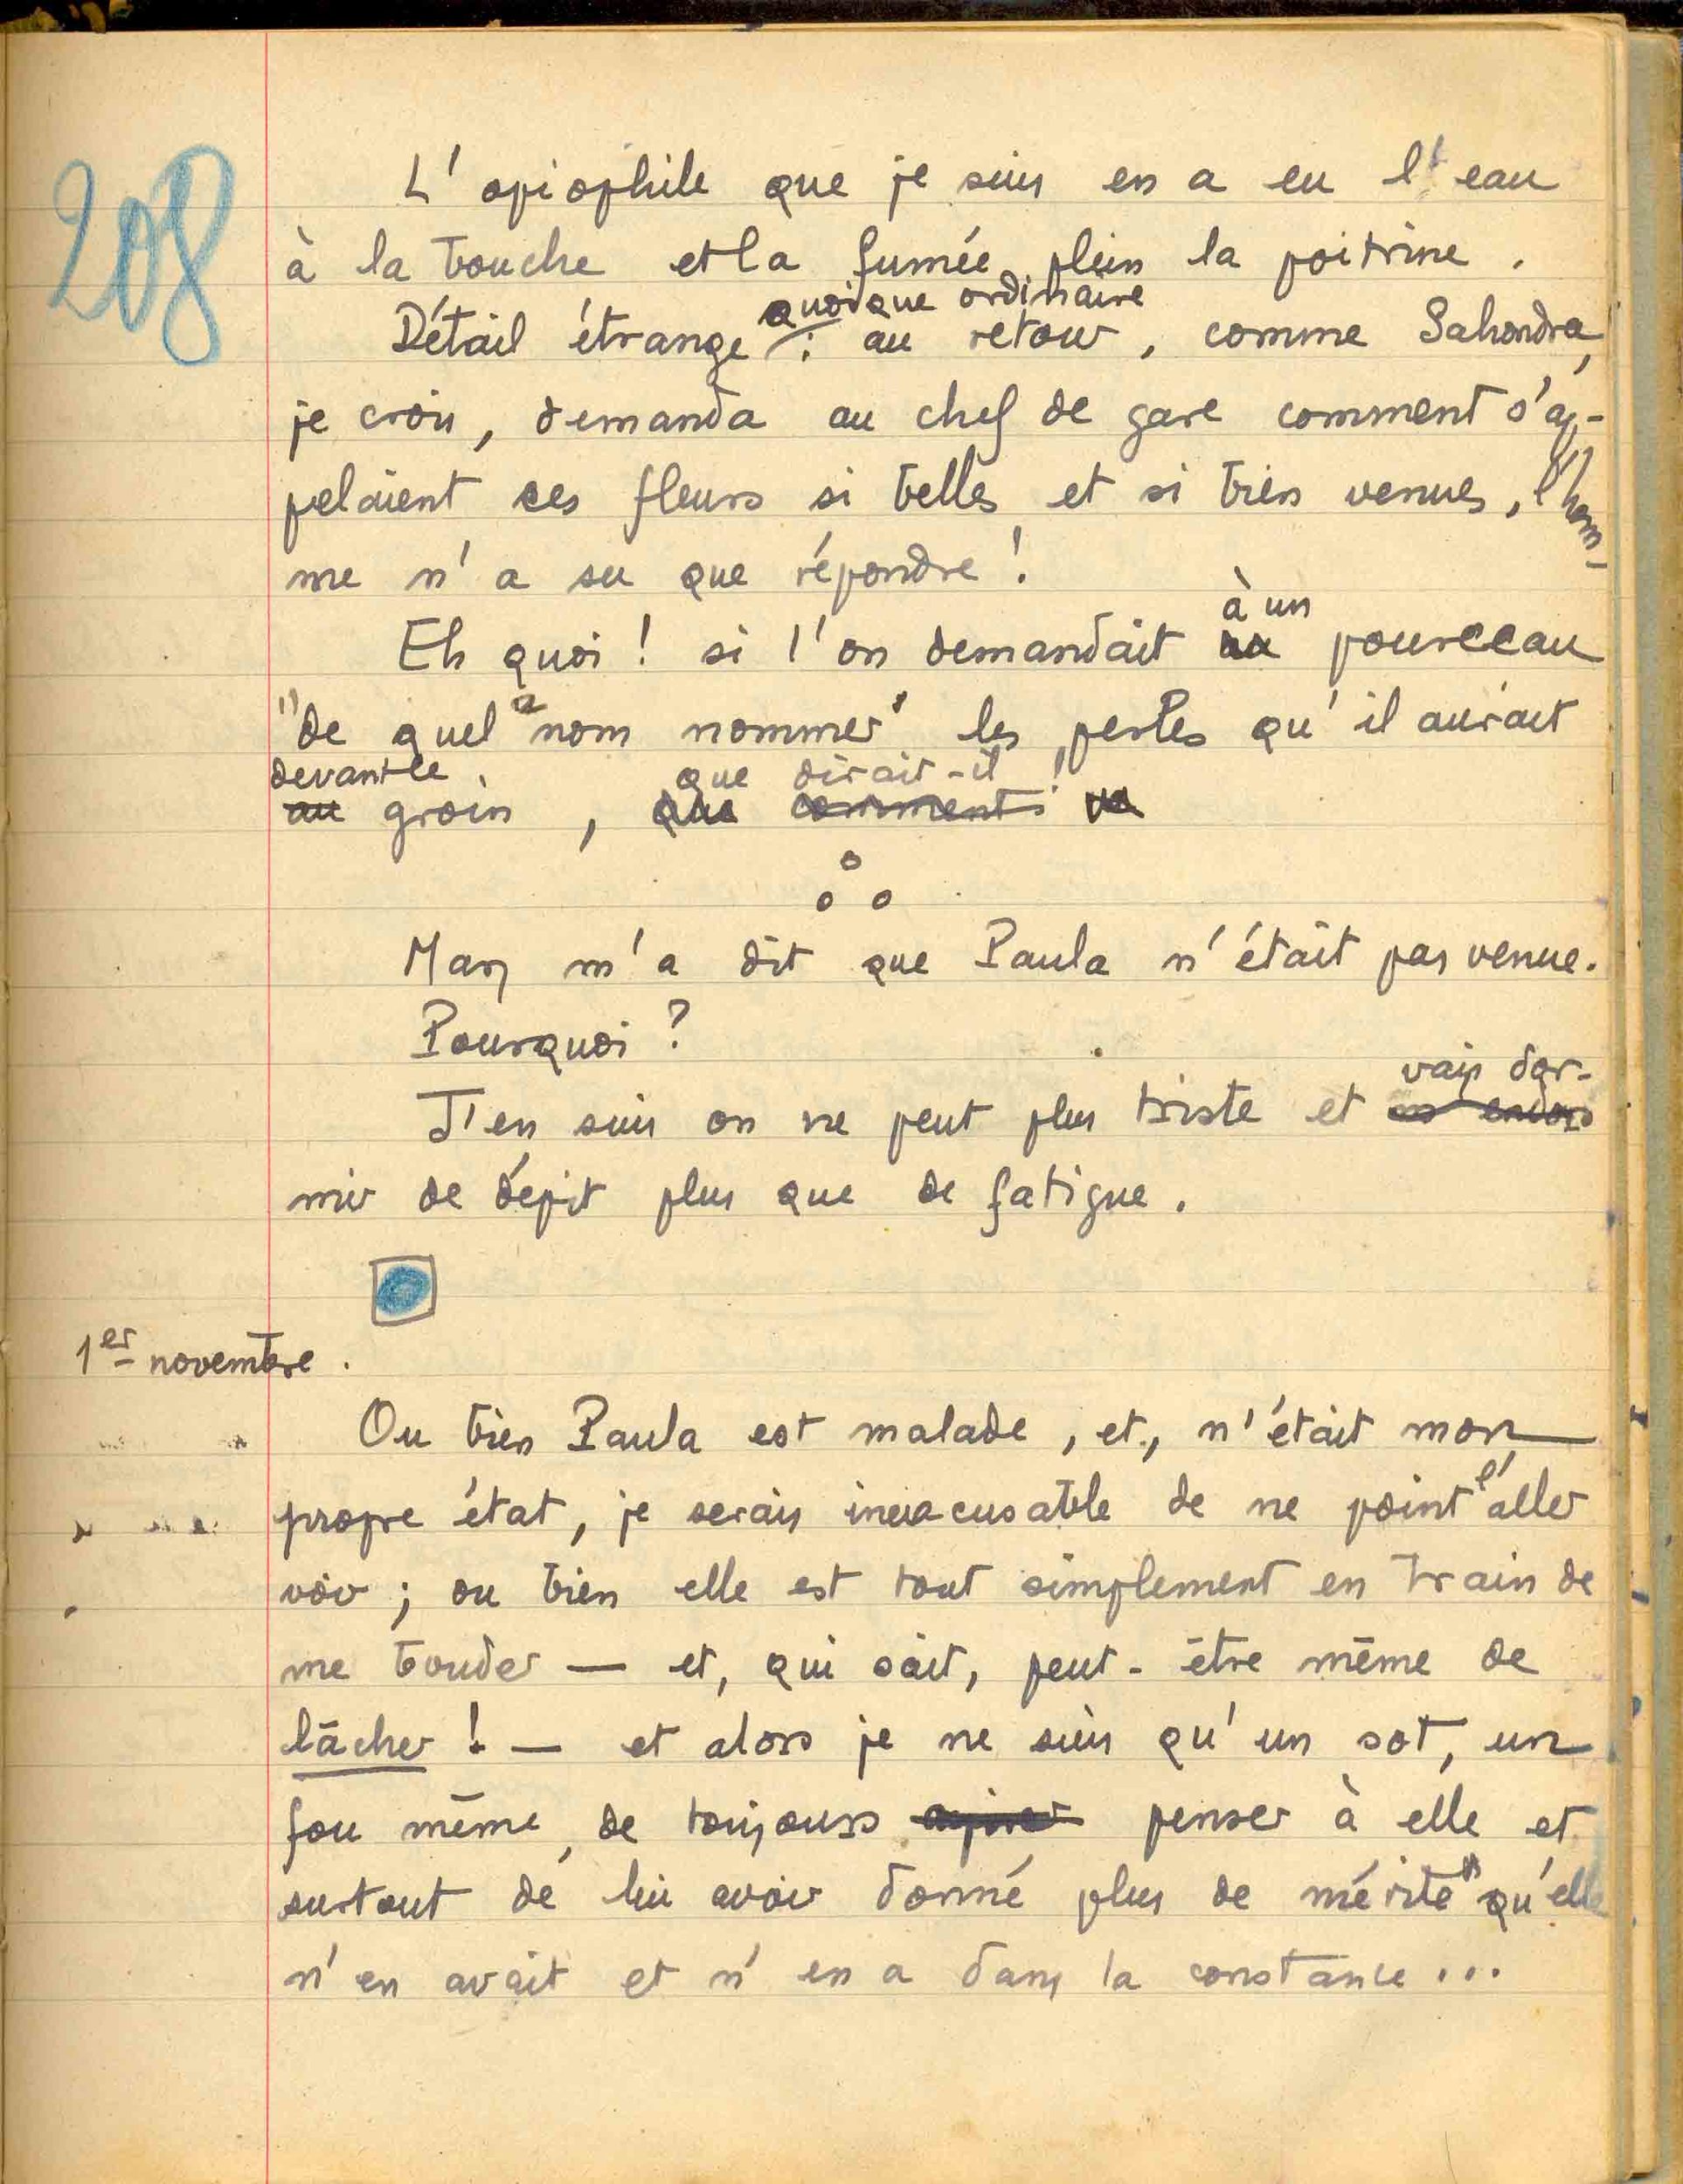 208
L'opiophile que je suis en a eu l'eau
à la bouche et la fumée plein la poitrine.
quoique ordinaire
Détail étrange : au retour, comme Sahondra,
je crois, demanda au chef de gare comment s'ap-
pelaient ces fleurs si belles et si bien venues, l'hom-
me n'a su que répondre !
à un
Eh quoi ! si l'on demandait au pourceau
"de quel nom nommer" les perles qu'il aurait
devant le que dirait-il !
au groin, que comment
Mary m'a dit que Paula n'était pas venue.
Pourquoi ?
vais dor-
J'en suis on ne peut plus triste et endors
mir de dépit plus que de fatigue.
1er novembre.
Ou bien Paula est malade, et, n'était mon
propre état, je serais inexcusable de ne point l'aller
voir ; ou bien elle est tout simplement en train de
me bouder — et, qui sait, peut-être même de
lâcher ! — et alors je ne suis qu'un sot, un
fou même, de toujours penser à elle et
surtout de lui avoir donné plus de mérite qu'elle
n'en avait et n'en a dans la constance...